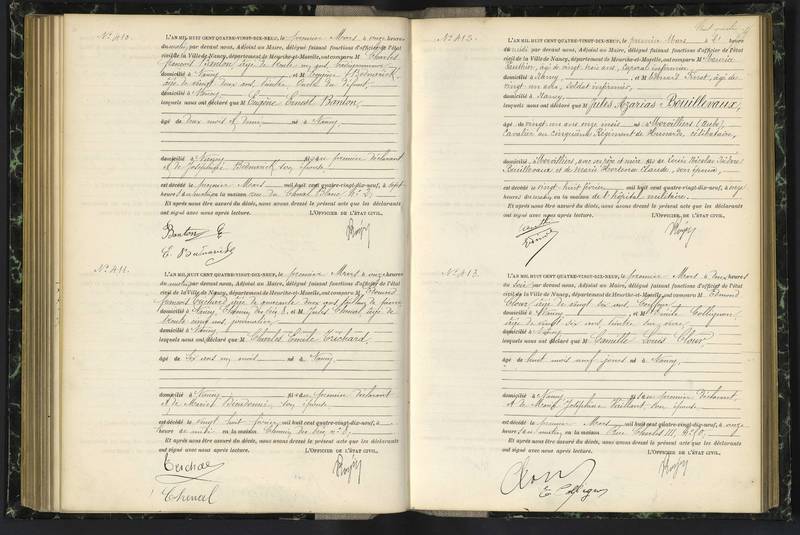 N° 410.
L'AN MIL HUIT CENT QUATRE-VINGT-DIX-NEUF, le premier Mars à onze heures
du matin, par devant nous, Adjoint au Maire, délégué faisant fonctions d'officier de l'état
civil de la Ville de Nancy, département de Meurthe-et-Moselle, ont comparu M Charles
François Banton, âgé de trente
domicilié à Nancy et M Eugène Bednarick
âgé de vingt deux ans, Oncle du défunt,
domicilié à Nancy
lesquels nous ont déclaré que M Eugène Ernest Banton,
âgé de deux mois et demi né à Nancy
domicilié à Nancy fils du premier déclarant
et de Joséphine Bednarick son épouse
est décédé le premier Mars mil huit cent quatre-vingt-dix-neuf, à sept
heures du matin en la maison rue du Cheval Blanc N° 2
Et après nous être assuré du décès, nous avons dressé le présent acte que les déclarants
ont signé avec nous après lecture. L'OFFICIER DE L'ÉTAT CIVIL.
Banton
E. Bednarick
N° 411.
L'AN MIL HUIT CENT QUATRE-VINGT-DIX-NEUF, le premier Mars à onze heures
du matin par devant nous, Adjoint au Maire, délégué faisant fonctions d'officier de l'état
civil de la Ville de Nancy, département de Meurthe-et-Moselle, ont comparu M Edmond
François Trichard, âgé de quarante deux ans tailleur de pierre
domicilié à Nancy, Chemin des 8. et M Jules Cheval, âgé de
trente cinq ans, journalier
domicilié à Nancy
lesquels nous ont déclaré que M Charles Emile Trichard,
âgé de six ans un mois né à Nancy
domicilié à Nancy fils du premier déclarant
et de Marie Dieudonné, son épouse
est décédé le vingt huit février mil huit cent quatre-vingt-dix-neuf, à
heure de midi en la maison Chemin des n° 8.
Et après nous être assuré du décès, nous avons dressé le présent acte que les déclarants
ont signé avec nous après lecture. L'OFFICIER DE L'ÉTAT CIVIL.
Cheval
N° 412.
L'AN MIL HUIT CENT QUATRE-VINGT-DIX-NEUF, le premier Mars à heure
du midi par devant nous, Adjoint au Maire, délégué faisant fonctions d'officier de l'état
civil de la Ville de Nancy, département de Meurthe-et-Moselle, ont comparu M
Gauthier, âgé de vingt trois ans, Caporal infirmier
domicilié à Nancy et M Bernard Kinet, âgé de
vingt un ans, soldat infirmier,
domicilié à Nancy
lesquels nous ont déclaré que M Jules Azarias Bouillevaux,
âgé de vingt un ans neuf mois né à Morvilliers (Aube),
Cavalier au cinquième Régiment de Hussards, célibataire,
domicilié à Morvilliers, avec ses père et mère, fils de Nicolas Isidore
Bouillevaux et de Marie Claude, son épouse,
est décédé le vingt huit février mil huit cent quatre-vingt-dix-neuf, à onze
heures du en la maison de l'hôpital militaire.
Et après nous être assuré du décès, nous avons dressé le présent acte que les déclarants
ont signé avec nous après lecture. L'OFFICIER DE L'ÉTAT CIVIL.
N° 413.
L'AN MIL HUIT CENT QUATRE-VINGT-DIX-NEUF, le premier Mars à deux heures
du soir par devant nous, Adjoint au Maire, délégué faisant fonctions d'officier de l'état
civil de la Ville de Nancy, département de Meurthe-et-Moselle, ont comparu M Edmond
Clour, âgé de vingt six ans, Coiffeur
domicilié à Nancy et M Emile Collignon
âgé de vingt six ans
domicilié à Nancy
lesquels nous ont déclaré que M Camille Louis Clour,
âgé de huit mois neuf jours né à Nancy
domicilié à Nancy fils du premier déclarant,
et de Marie Joséphine son épouse
est décédé le premier Mars mil huit cent quatre-vingt-dix-neuf, à onze
heures du matin en la maison Rue Charles III, N°
Et après nous être assuré du décès, nous avons dressé le présent acte que les déclarants
ont signé avec nous après lecture. L'OFFICIER DE L'ÉTAT CIVIL.
Clour
E. Collignon